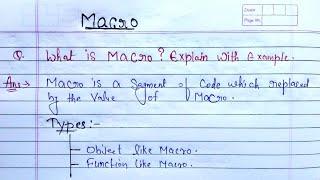 Macro
Date
Page No.
Q. What is Macro? Explain with Example.
Ans:→ Macro is a Sagment of Code which replaced
by the Value of Macro.
Types:-
Object like Macro.
Function like Macro.